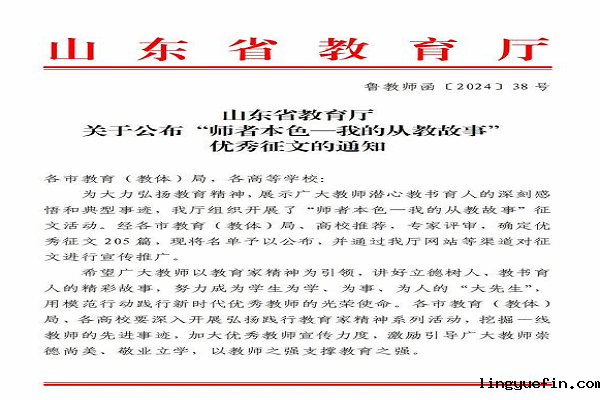 山东省教育厅
鲁教师函〔2024〕38号
山东省教育厅
关于公布“师者本色—我的从教故事”
优秀征文的通知
各市教育（教体）局，各高等学校：
为大力弘扬教育精神，展示广大教师潜心教书育人的深刻感
悟和典型事迹，我厅组织开展了“师者本色—我的从教故事”征
文活动。经各市教育（教体）局、高校推荐，专家评审，确定优
秀征文205篇，现将名单予以公布，并通过我厅网站等渠道对征
文进行宣传推广。
希望广大教师以教育家精神为引领，讲好立德树人、教书育
人的精彩故事，努力成为学生为学、为事、为人的“大先生”，
用模范行动践行新时代优秀教师的光荣使命。各市教育（教体）
局、各高校要深入开展弘扬践行教育家精神系列活动，挖掘一线
教师的先进事迹，加大优秀教师宣传力度，激励引导广大教师崇
德尚美、敬业立学，以教师之强支撑教育之强。
lingyuefin.com